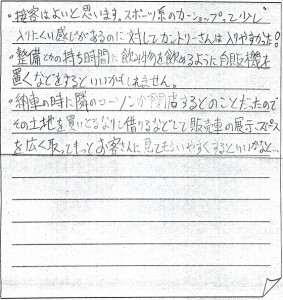 ・接客はよいと思います。スポーツ系のカーショップって少し
入りにくい感じがあるのに対してカントリーさんは入りやすかったよ!
・整備とかの持ち時間に飲み物を飲めるように自販機を
置くなどをするといいかもしれません。
・納車の時に隣のコーナンが閉店するとのことだったので
その土地を買いとるなりし借りるなどして販売車の展示スペース
を広く取ってもっとお客さんに見てもらいやすくするといいかなと…